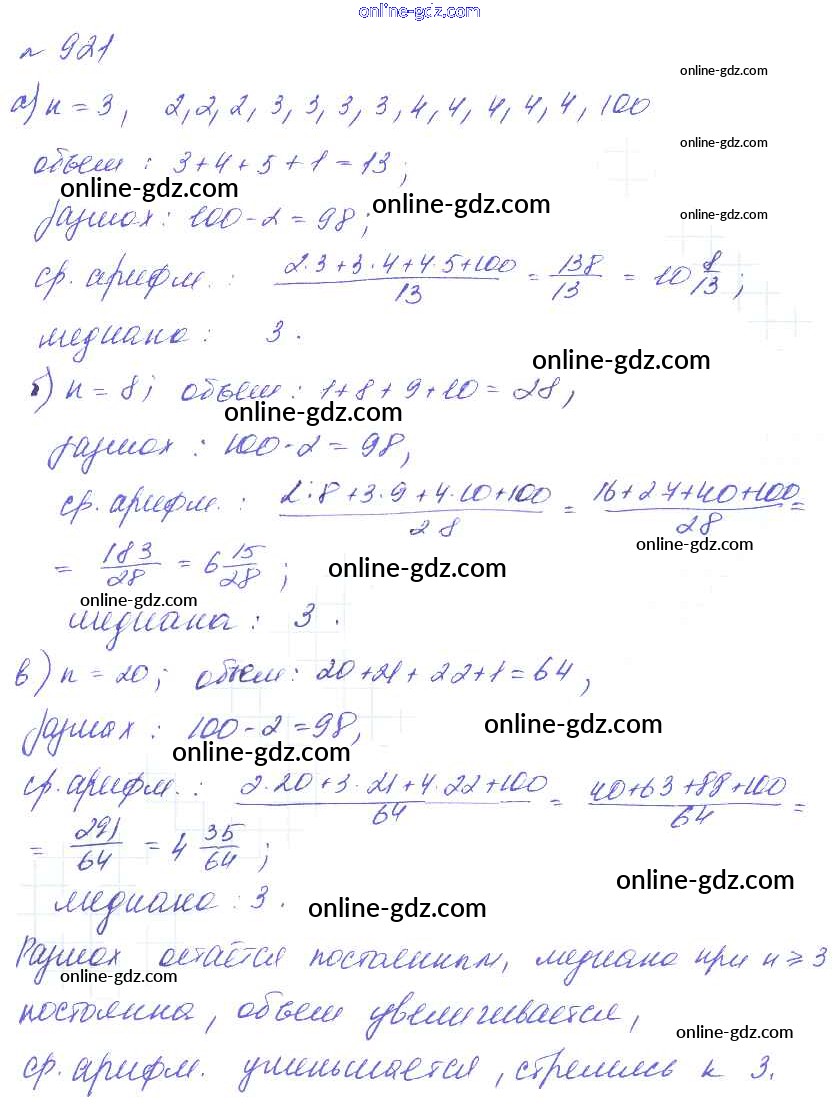 online-gdz.com
№ 921
online-gdz.com
а) n = 3, 2, 2, 2, 3, 3, 3, 3, 4, 4, 4, 4, 4, 100
online-gdz.com
объем : 3+4+5+1=13;
online-gdz.com
online-gdz.com
online-gdz.com
размах: 100-2=98;
ср. арифм. : (2·3+3·4+4·5+100)/13 = 138/13 = 10 8/13;
медиана : 3.
online-gdz.com
б) n = 8; объем : 1+8+9+10=28,
online-gdz.com
размах : 100-2=98,
ср. арифм. : (2·8+3·9+4·10+100)/28 = (16+27+40+100)/28 =
online-gdz.com
= 183/28 = 6 15/28;
online-gdz.com
online-gdz.com
медиана : 3.
в) n = 20; объем: 20+21+22+1=64,
размах : 100-2=98,
online-gdz.com
online-gdz.com
ср. арифм. : (2·20+3·21+4·22+100)/64 = (40+63+88+100)/64 =
= 291/64 = 4 35/64;
online-gdz.com
медиана : 3.
online-gdz.com
Размах остаётся постоянным, медиана при n ≥ 3
online-gdz.com
постоянна, объем увеличивается,
online-gdz.com
ср. арифм. уменьшается, стремясь к 3.